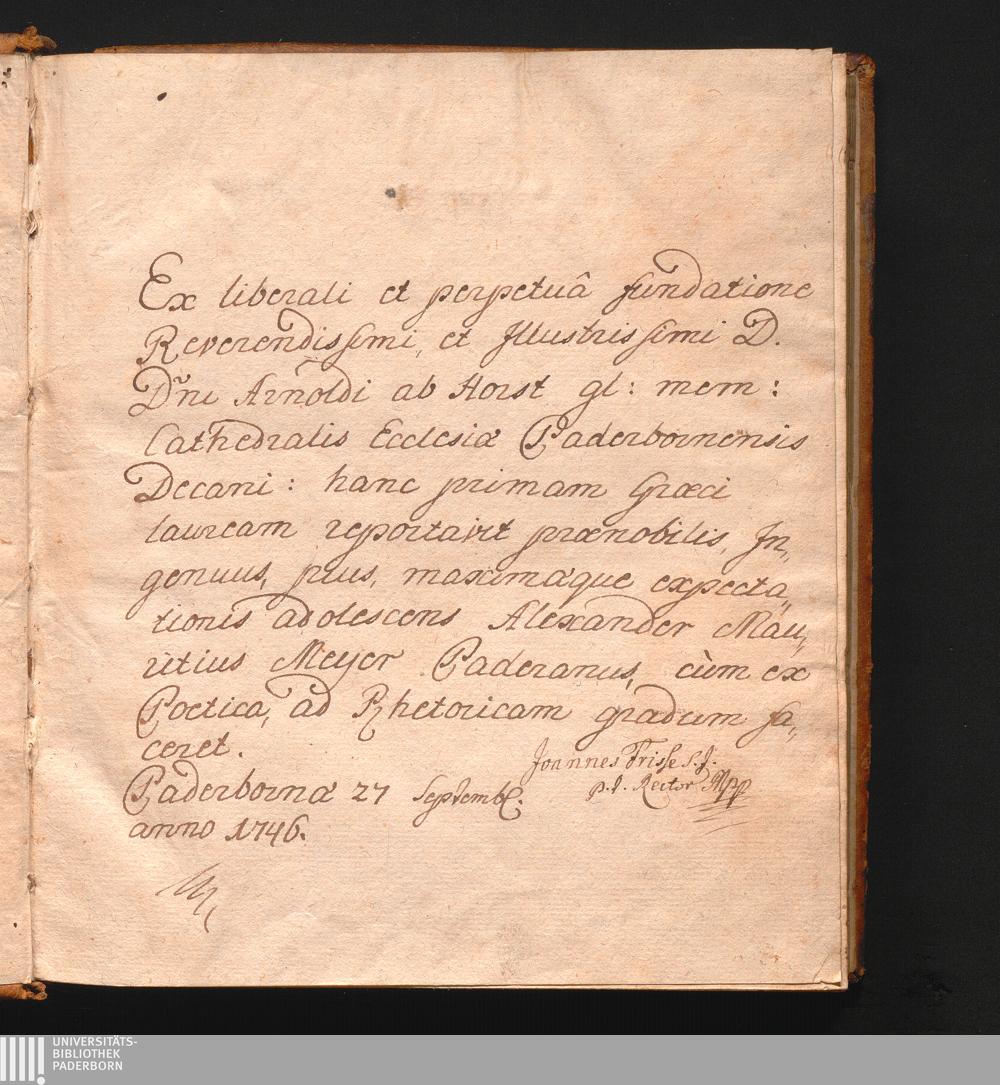 Ex liberali et perpetuâ fundatione
Reverendissimi, et Illustrissimi D.
Dñi Arnoldi ab Horst gl: mem:
Cathedralis Ecclesiæ Paderbornensis
Decani: hanc primam Græci
lauream reportavit prænobilis, In„
genuus, pius, maximæque expecta„
tionis adolescens Alexander Mau„
ritius Meyer Paderanus, cùm ex
Poetica, ad Rhetoricam gradum fa„
ceret.
Joannes Frisse S.J.
p.t. Rector Mpp
Paderbornæ 27 Septembr.
anno 1746.
UNIVERSITÄTS-
BIBLIOTHEK
PADERBORN